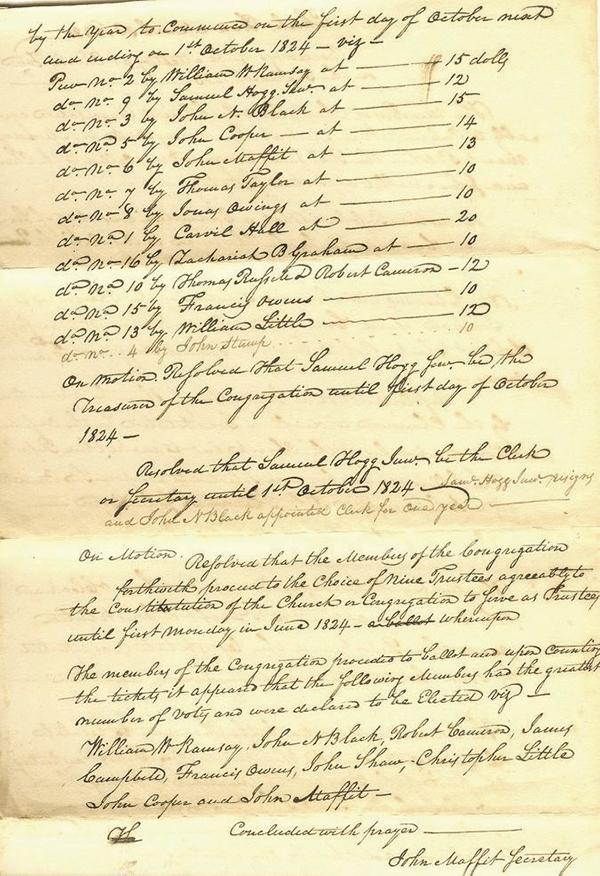 by the Year to Commence on the first day of October next
and ending on 1st October 1824 – viz –
Pew No 2 by William W Ramsay at — 15 dolls
do No 9 by Samuel Hogg Junr at — 12
do No 3 by John N. Black at — 15
do No 5 by John Cooper — at — 14
do No 6 by John Maffit at — 13
do No 7 by Thomas Taylor at — 10
do No 8 by Jonas Owings at — 10
do No 1 by Carvil Hall at — 20
do No 16 by Zachariah B Graham at — 10
do No 10 by Thomas Russell & Robert Cameron – 12
do No 15 by Francis Owens — 10
do No 13 by William Little — 12
do No .. 4 by John Stump . . . . . . . 10
On Motion Resolved That Samuel Hogg Senr. be the
Treasurer of the Congregation until first day of October
1824 –
Resolved that Samuel Hogg Junr. be the Clerk
or Secretary until 1st October 1824 – Saml. Hogg Junr. resigns
and John N Black appointed Clerk for One year —
On Motion. Resolved that the Members of the Congregation
forthwith proceed to the Choice of Nine Trustees agreeably to
the Constitution of the Church or Congregation to serve as Trustees
until first Monday in June 1824 – a ballot whereupon
The members of the Congregation proceeded to ballot and upon Counting
the tickets it appeared that the following Members had the greatest
number of Votes and were declared to be Elected viz —
William W Ramsay, John N Black, Robert Cameron, James
Campbell, Francis Owens, John Shaw, Christopher Little
John Cooper and John Maffit –
Concluded with prayer —
John Maffit Secretary